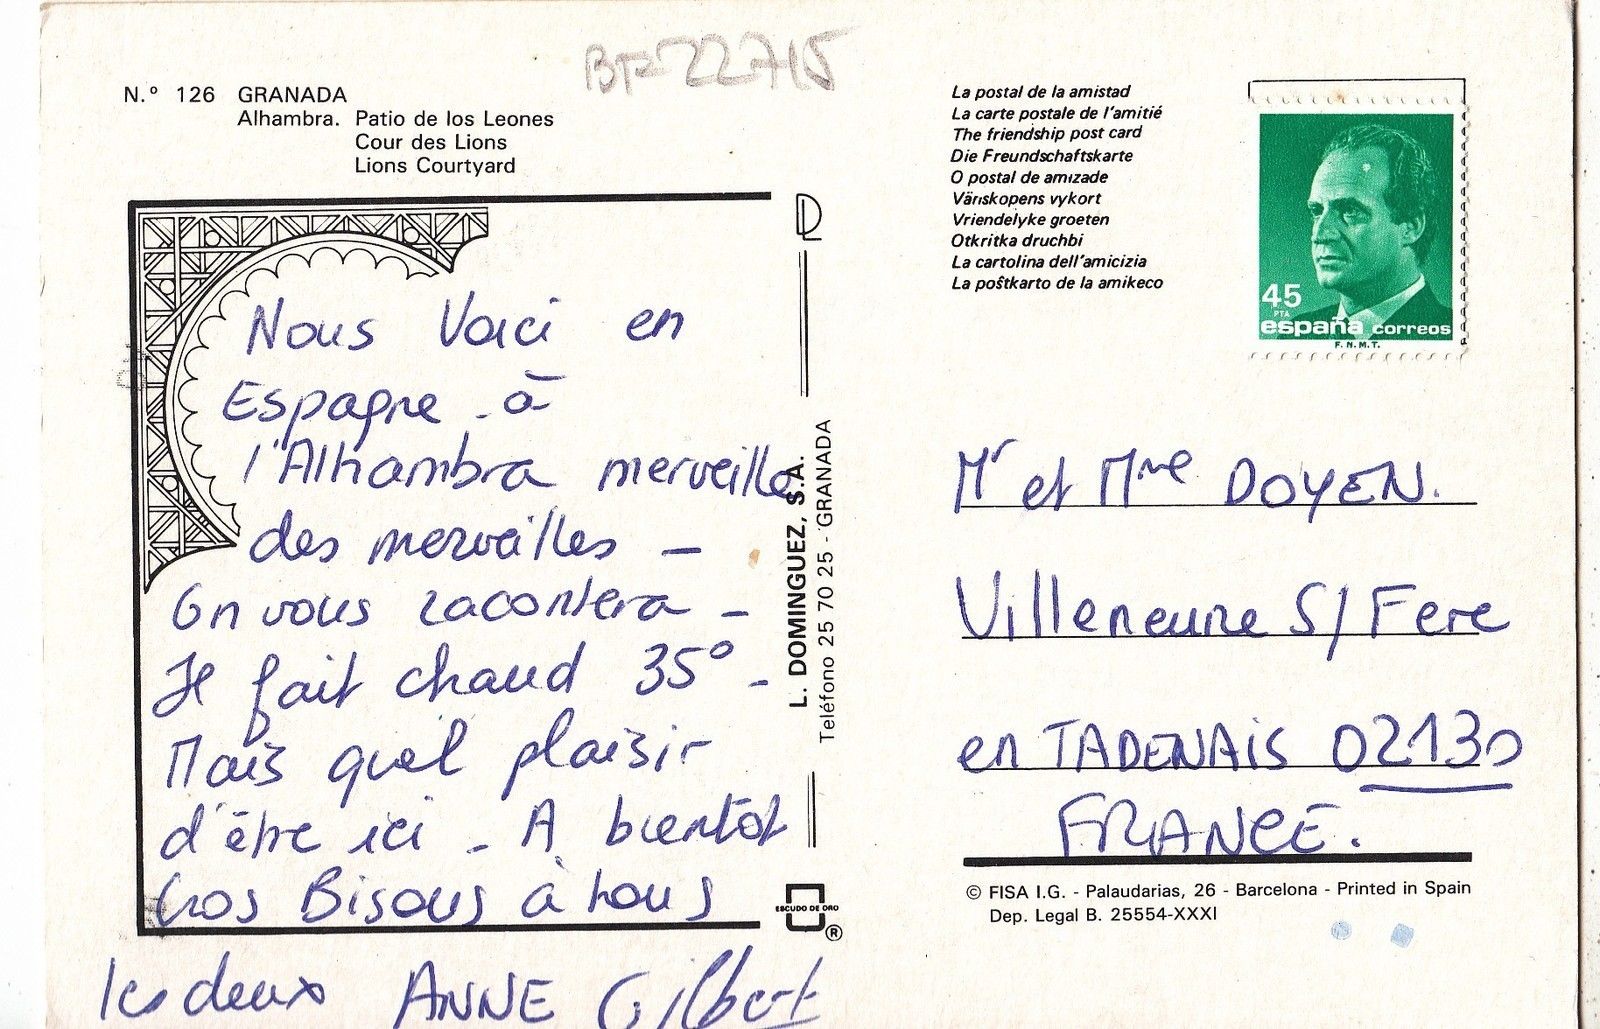 BF-22715
N.º 126 GRANADA
Alhambra. Patio de los Leones
Cour des Lions
Lions Courtyard
Nous Voici en
Espagne - à
l'Alhambra merveille
des merveilles -
On vous racontera -
Il fait chaud 35° -
Mais quel plaisir
d'être ici - A bientôt
Gros Bisous à tous
les deux ANNE Gilbert
L. DOMINGUEZ, S.A.
Teléfono 25 70 25 - GRANADA
ESCUDO DE ORO
®
La postal de la amistad
La carte postale de l'amitié
The friendship post card
Die Freundschaftskarte
O postal de amizade
Vänskopens vykort
Vriendelyke groeten
Otkritka druchbi
La cartolina dell'amicizia
La poŝtkarto de la amikeco
45
PTA
españa correos
F.N.M.T.
Mr et Mme DOYEN.
Villeneuve S/ Fere
en TADENAIS 02130
FRANCE.
© FISA I.G. - Palaudarias, 26 - Barcelona - Printed in Spain
Dep. Legal B. 25554-XXXI